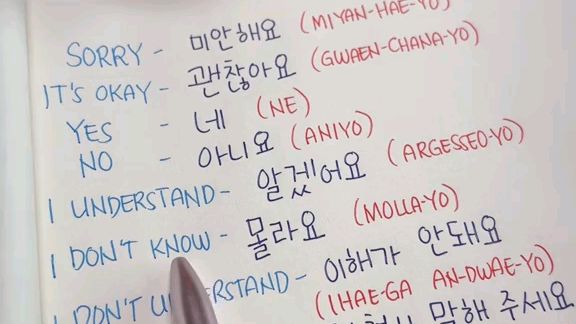 SORRY - 미안해요 (MIYAN-HAE-YO)
IT'S OKAY - 괜찮아요 (GWAEN-CHANA-YO)
YES - 네 (NE)
NO - 아니요 (ANIYO)
I UNDERSTAND - 알겠어요 (ARGESSEO-YO)
I DON'T KNOW - 몰라요 (MOLLA-YO)
I DON'T RSTAND - 이해가 안돼요
(IHAE-GA AN-DWAE-YO)
말해 주세요